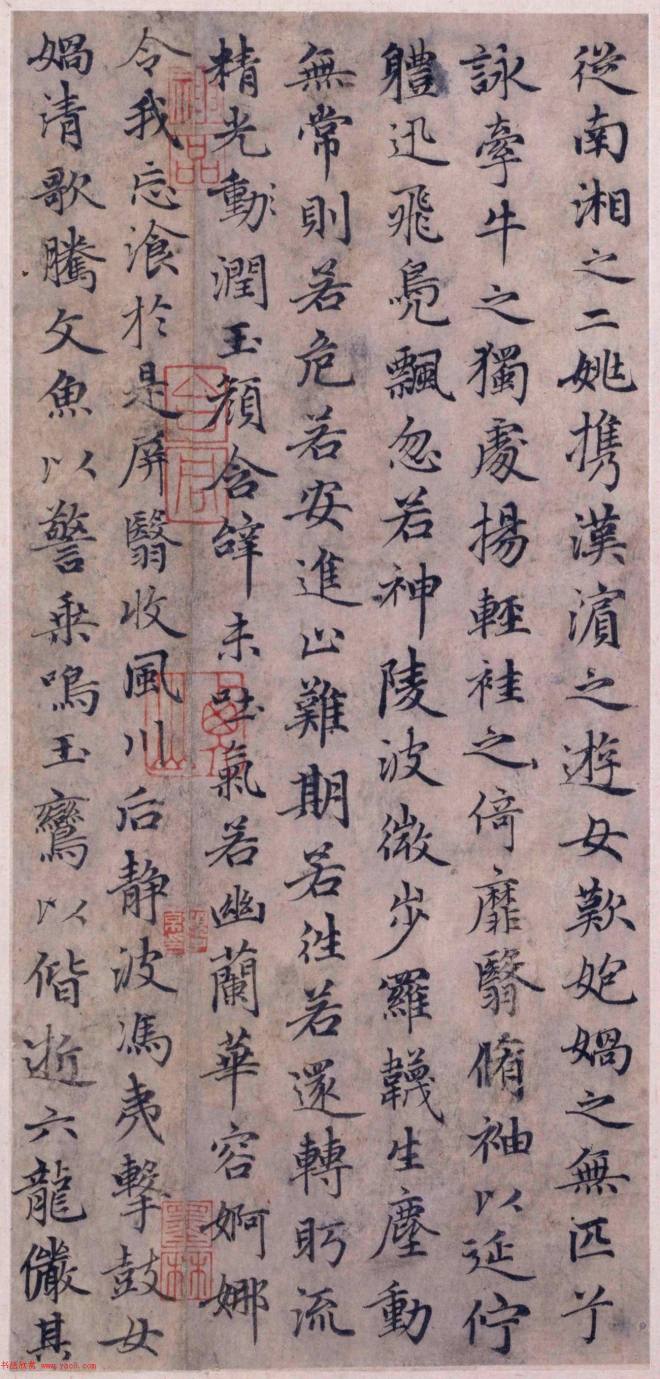 從南湘之二姚携漢濱之遊女歎媧之無匹兮
詠牽牛之獨處揚輕袿之倚靡翳脩袖以延佇
軆迅飛鳧飄忽若神陵波微步羅韈生塵動
無常則若危若安進止難期若往若還轉眄流
精光動潤玉顏含辝未吐氣若幽蘭華容婀娜
令我忘飡於是屏翳收風川后静波馮夷擊鼓女
媧清歌騰文魚以警乘鳴玉鸞以偕逝六龍儼其
神品
墨林
书法欣赏 www.yac8.com